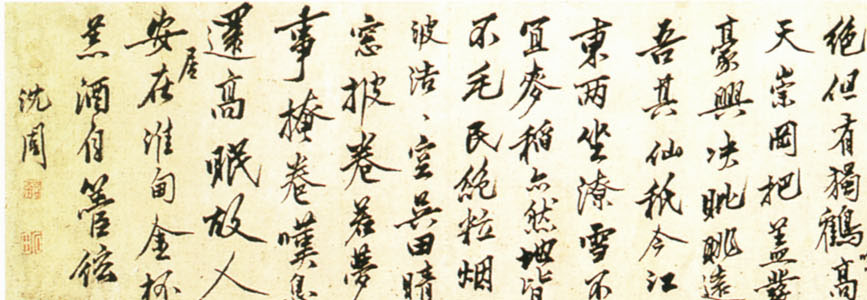 絕但有獨鶴高
天崇岡把盖發
豪興決眦眺遠
吾其仙秖今江
東兩坐潦雪不
宜麥稻亦然地皆
不毛民絕粒烟
波浩、空吳田晴
窓披卷若夢
事掩卷嘆息
還高眠故人
居
安在淮甸金杯
煮酒自管絃
沈周